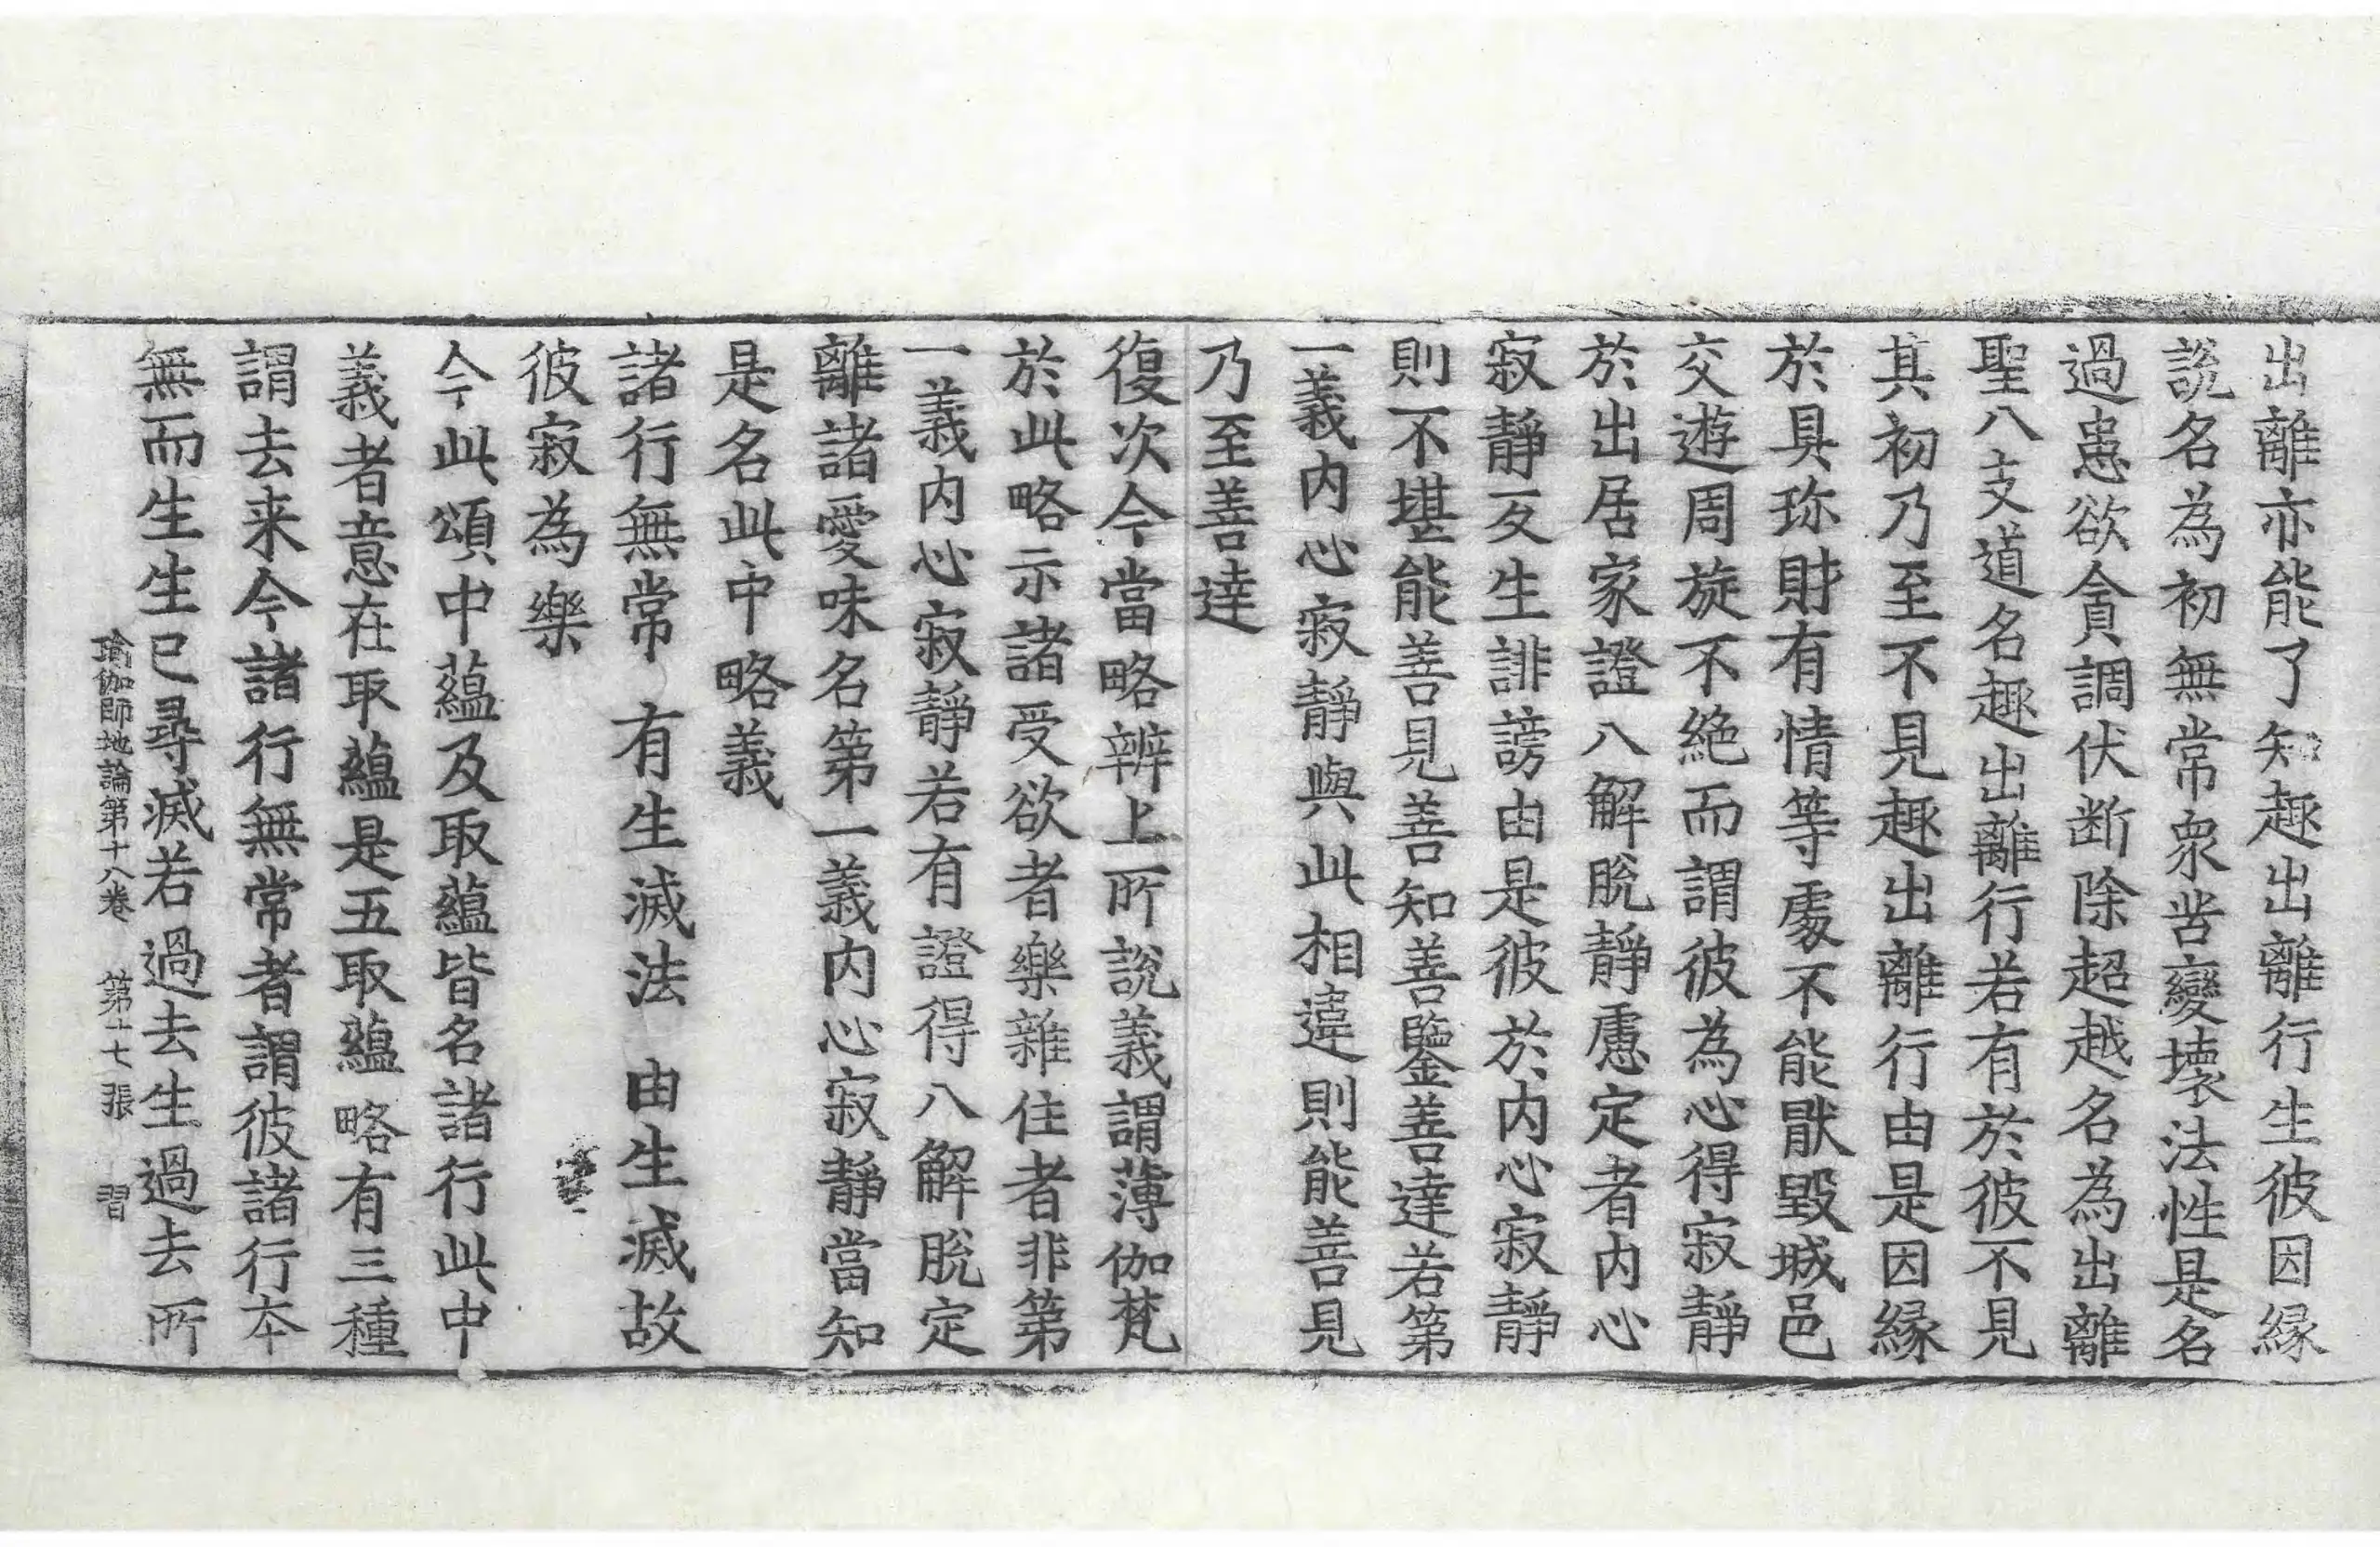 出離亦能了知趣出離行生彼因縁
說名為初無常衆苦變壞法性是名
過患欲貪調伏断除超越名為出離
聖八支道名趣出離行若有於彼不見
其初乃至不見趣出離行由是因縁
於具珎財有情等處不能猒毀城邑
交遊周旋不絶而謂彼為心得寂靜
於出居家證八解脫靜慮定者内心
寂靜反生誹謗由是彼於内心寂靜
則不堪能善見善知善鑒善達若第
一義内心寂靜與此相違則能善見
乃至善達
復次今當略辨上所說義謂薄伽梵
於此略示諸受欲者樂雜住者非第
一義内心寂靜若有證得八解脫定
離諸愛味名第一義内心寂靜當知
是名此中略義
諸行無常　有生滅法　由生滅故
彼寂為樂
今此頌中蘊及取蘊皆名諸行此中
義者意在取蘊是五取蘊略有三種
謂去来今諸行無常者謂彼諸行本
無而生生已尋滅若過去生過去所
瑜伽師地論第十八卷　第十七張　習